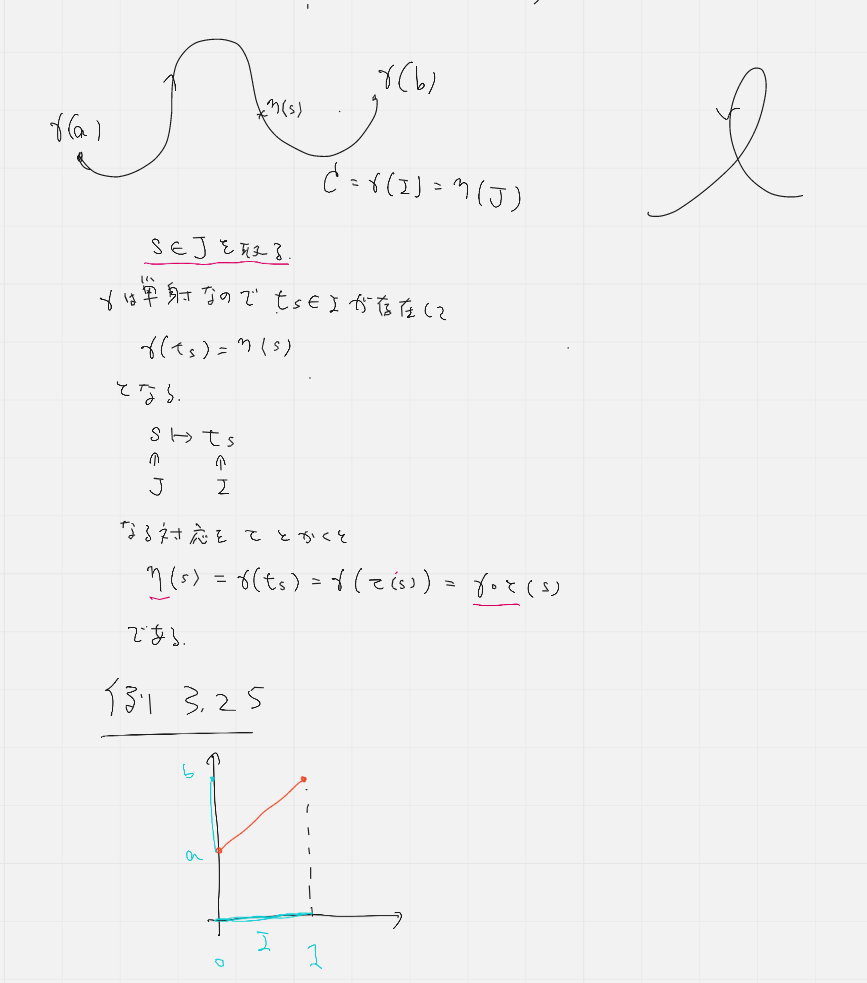 γ(a)
η(s)
γ(b)
C = γ(I) = η(J)
s ∈ J を取る.
γは単射なので t_s ∈ I が存在して
γ(t_s) = η(s)
となる.
s ↦ t_s
↑ ↑
J I
なる対応を τ とかくと
η(s) = γ(t_s) = γ(τ(s)) = γ∘τ(s)
である.
例 3.25
b
a
I
0 1